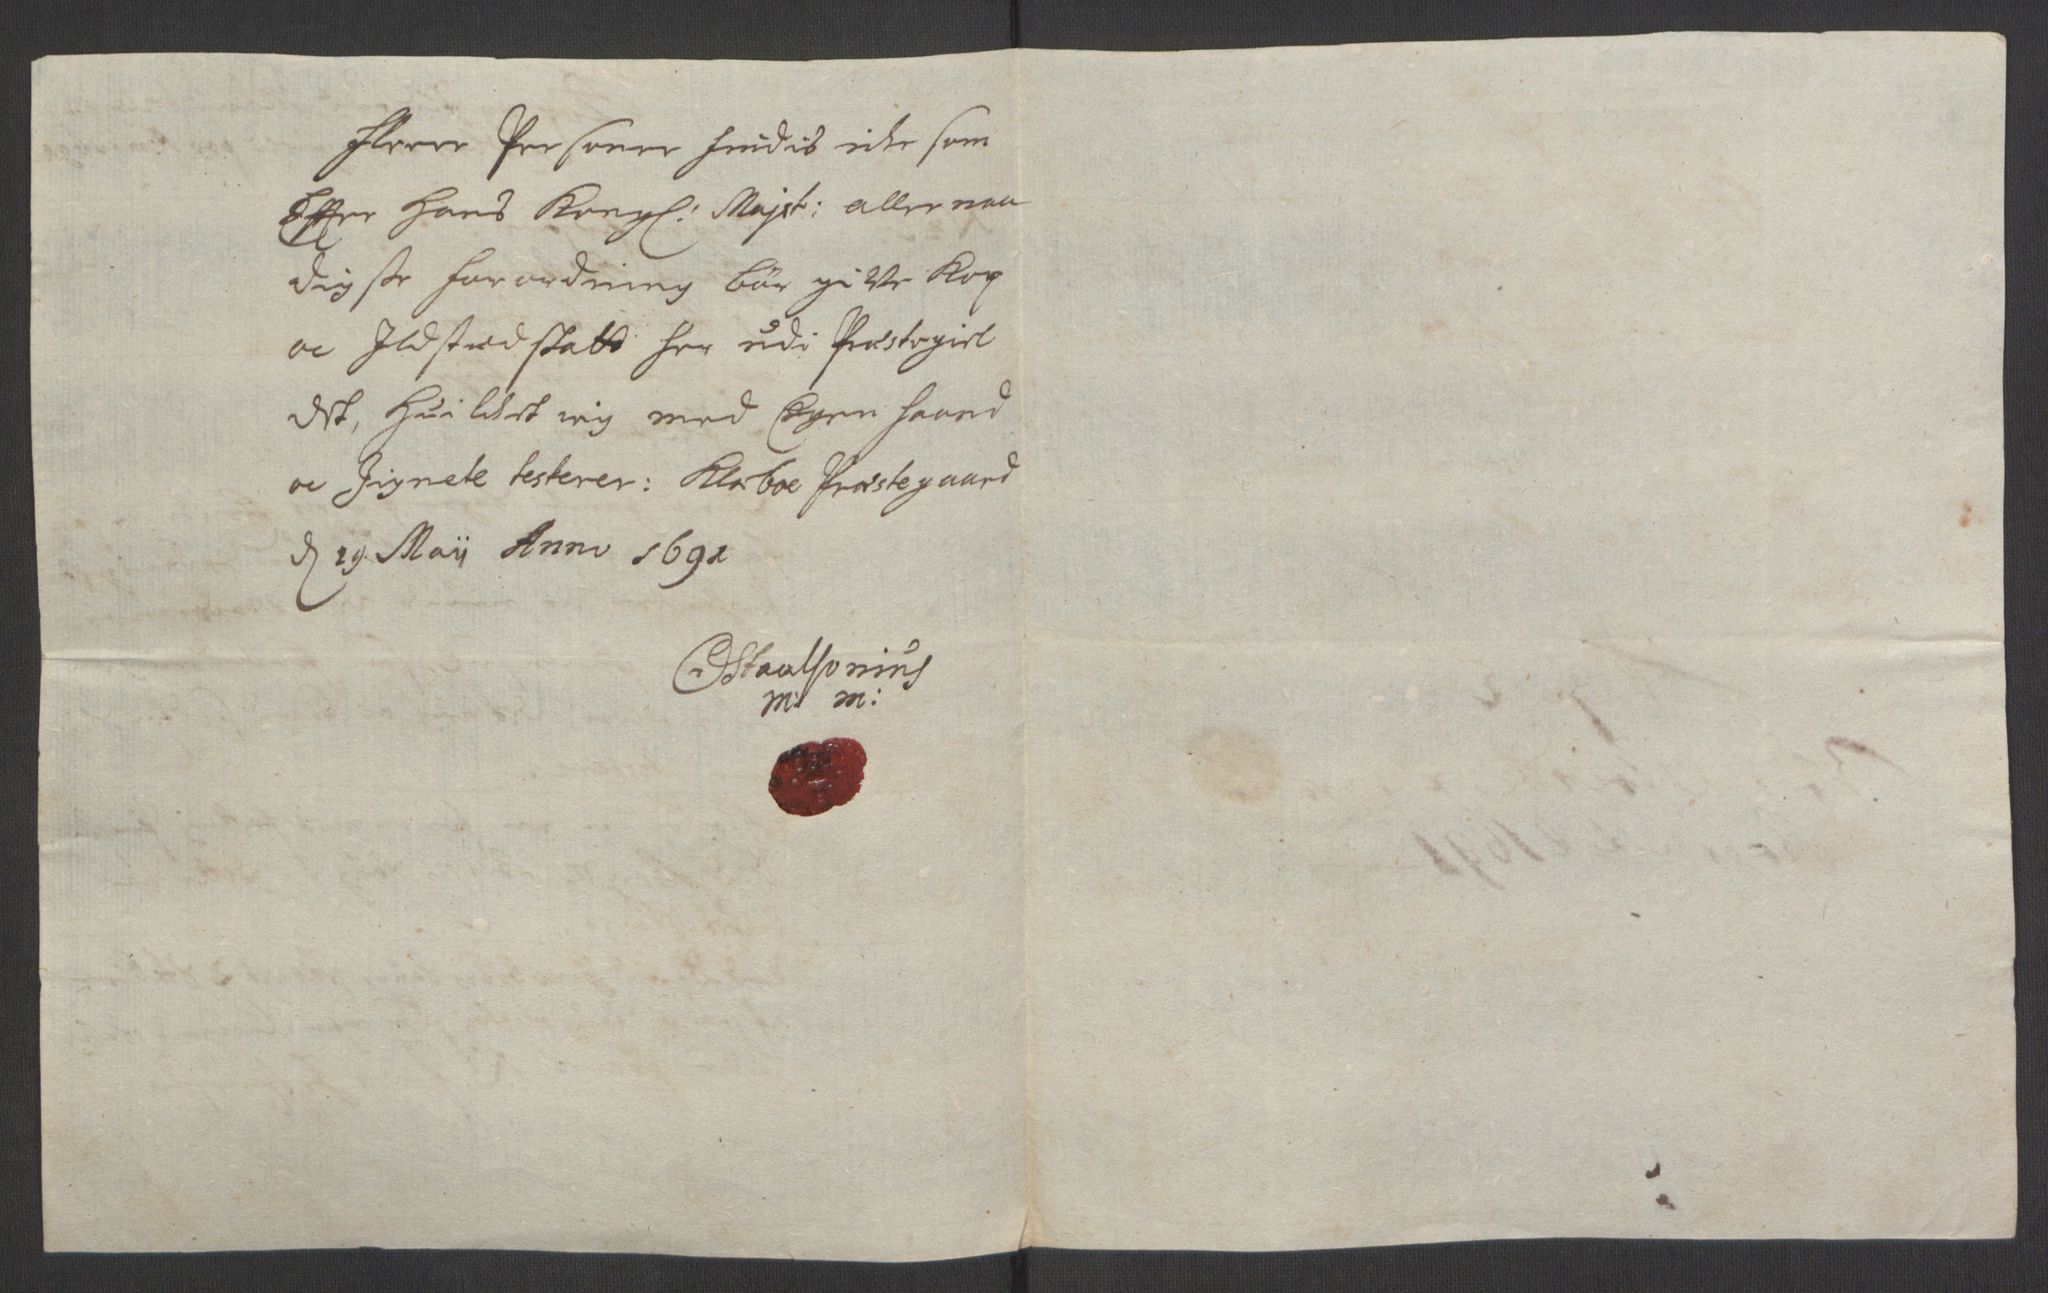 Flere Personer findis icke som
Effter Hans Kongl: Majst: aller naa
digste forordning bör give Kop
oc Ildstædskatt her udi Præstegiel
det, Huilcket ieg med Egen haand
oc Signete testerer: Klæboe Præstegaard
d 29 Maÿ Anno 1691
Staalsonius
m: m: